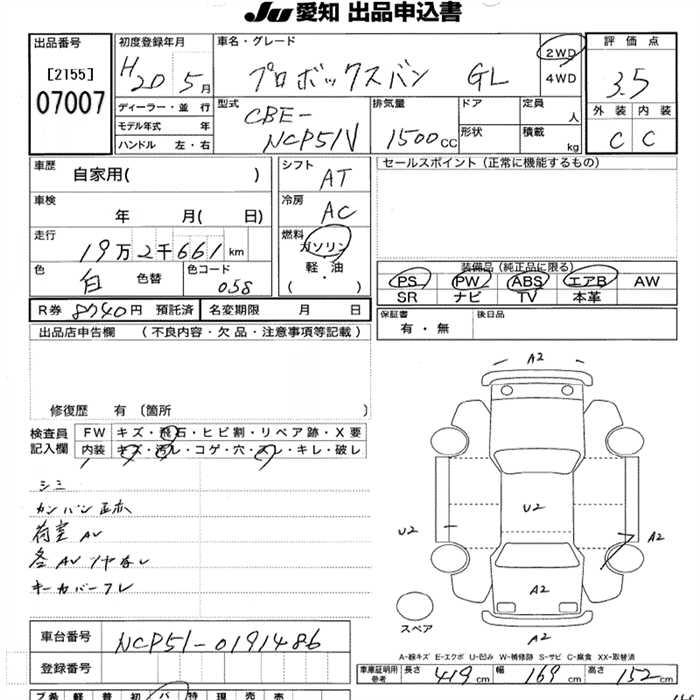 JU 愛知 出品申込書
出品番号
[2155]
07007
初度登録年月
H20 5月
ディーラー・並行
モデル年式 年
ハンドル 左・右
車名・グレード
プロボックスバン GL
2WD
4WD
型式
CBE-
NCP51V
排気量
1500cc
ドア
形状
定員
人
積載
kg
評価点
3.5
外装 内装
C C
車歴
自家用( )
車検
年 月( 日)
走行
19万2千661km
色
白 色替
色コード
058
シフト
AT
冷房
AC
燃料
ガソリン
軽・油
( ・ )
セールスポイント (正常に機能するもの)
装備品 (純正品に限る)
PS PW ABS エアB AW
SR ナビ TV 本革
R券 8740円 預託済 名変期限 月 日
保証書
有・無
後日品
出品店申告欄 (不良内容・欠品・注意事項等記載)
修復歴 有 (箇所 )
検査員
記入欄
FW キズ・飛石・ヒビ割・リペア跡・X要
内装 キズ・汚レ・コゲ・穴・スレ・キレ・破レ
シミ
カンバン跡
荷室 AU
各AUツヤ無し
キーカバーフレ
A2
U2
U2
A2
A2
A2
スペア
A-線キズ E-エクボ U-凹み W-補修跡 S-サビ C-腐食 XX-取替済
車台番号 NCP51-0191486
登録番号
車庫証明用
参考
長さ 419cm 幅 169cm 高さ 152cm